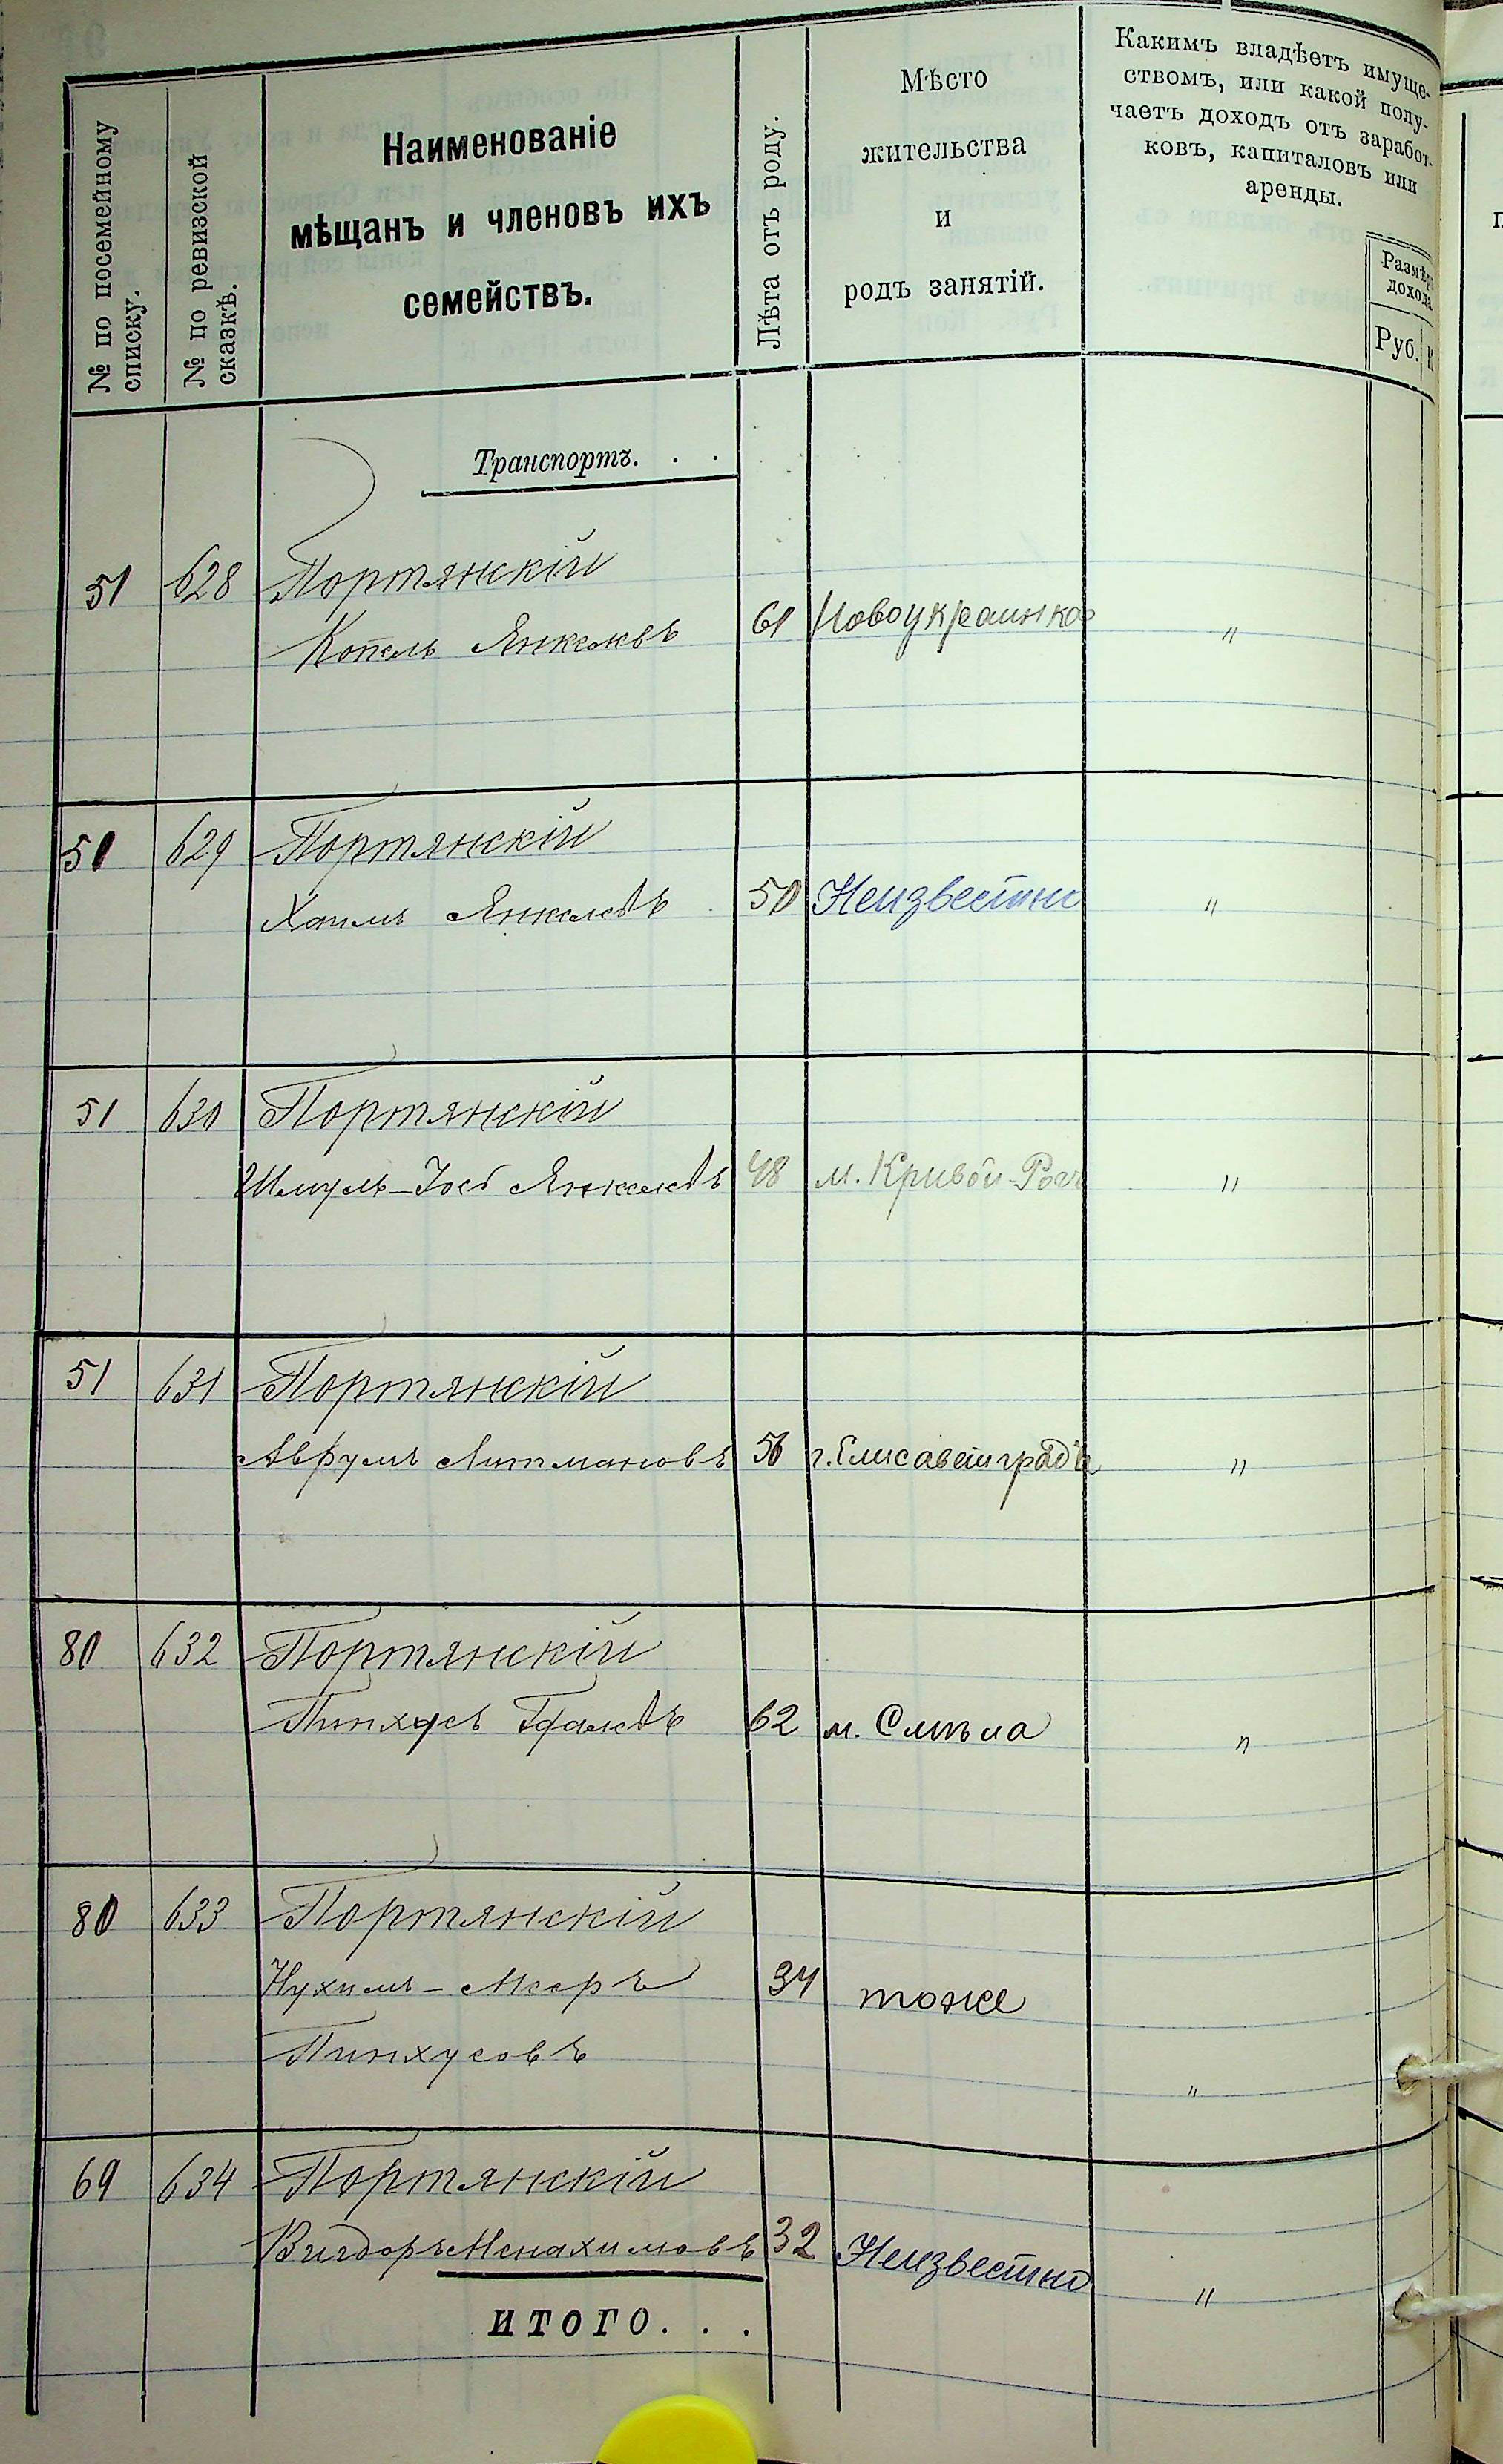 № по посемейному
списку.
№ по ревизской
сказкѣ.
Наименованіе
мѣщанъ и членовъ ихъ
семействъ.
Лѣта отъ роду.
Мѣсто
жительства
и
родъ занятій.
Какимъ владѣетъ имуще-
ствомъ, или какой полу-
чаетъ доходъ отъ заработ-
ковъ, капиталовъ или
аренды.
Размѣръ
дохода
Руб.
Транспортъ. . .
51 628 Портянскій
Копель Янкелевъ 61 Новоукраинка "
51 629 Портянскій
Хаимъ Янкелевъ 50 Неизвестно "
51 630 Портянскій
Шмуль-Іос Янкелевъ 48 м. Кривой-Рогъ "
51 631 Портянскій
Аврумъ Литмановъ 56 г. Елисаветградъ "
80 632 Портянскій
Пинхусъ 62 м. Смѣла "
80 633 Портянскій
Нухимъ-Мееръ 34 тоже
Пинхусовъ "
69 634 Портянскій
Вигдоръ Менахимовъ 32 Неизвестно "
ИТОГО. . .